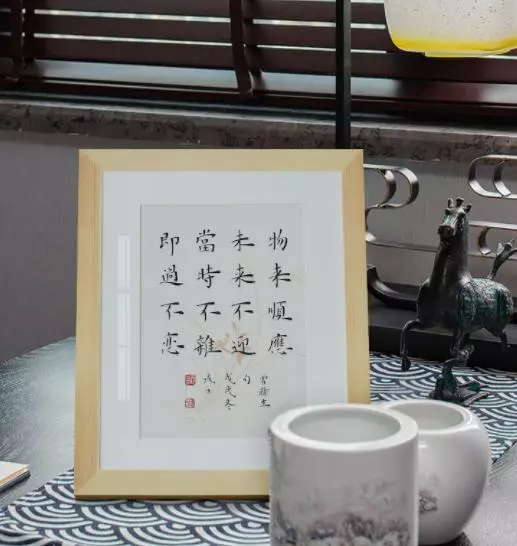 物来順應
未来不迎
當時不雜
即過不恋
曾滌生
句
戊戌冬